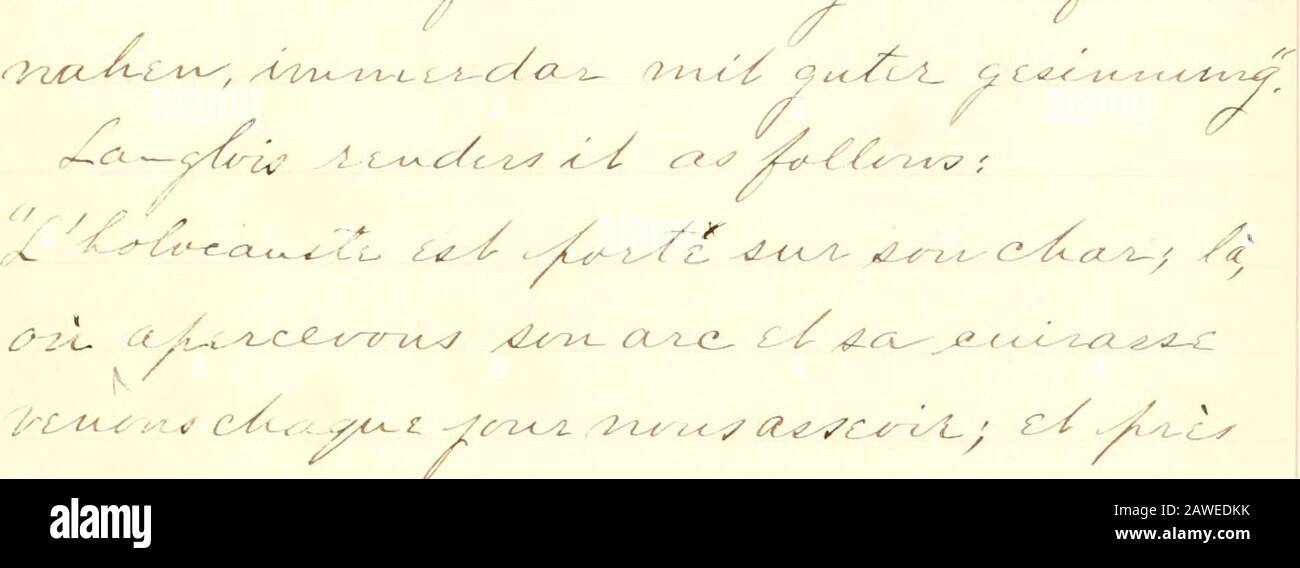 nahen, immerdar mit guter gesinnung".
Langlois renders it as follows:
"L'holocauste est porté sur son char; là,
où apercevons son arc et sa cuirasse
venons chaque jour nous asseoir; et près
alamy
Image ID: 2AWEDKK
www.alamy.com